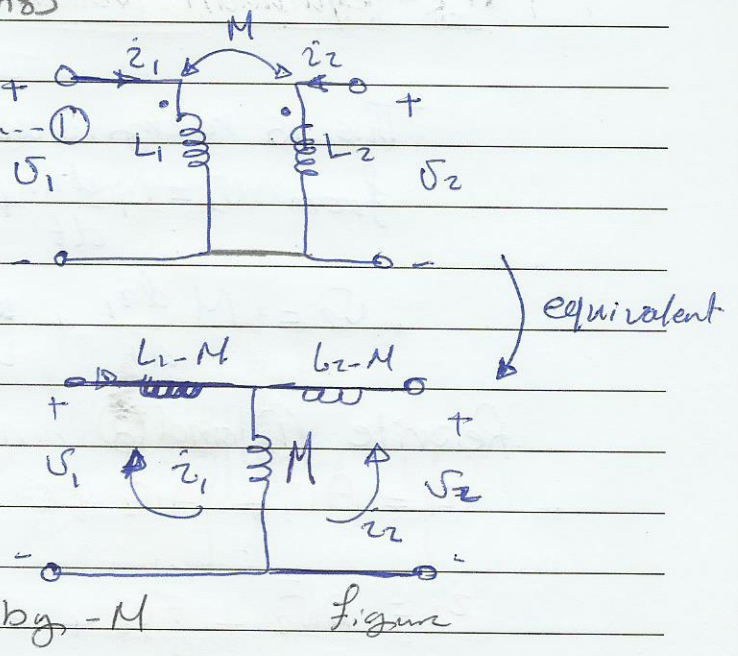 M
i1 i2
+ +
...① L1 L2
υ1 υ2
- -
equivalent
L1-M L2-M
+ +
υ1 i1 M υ2
i2
- -
by -M figure